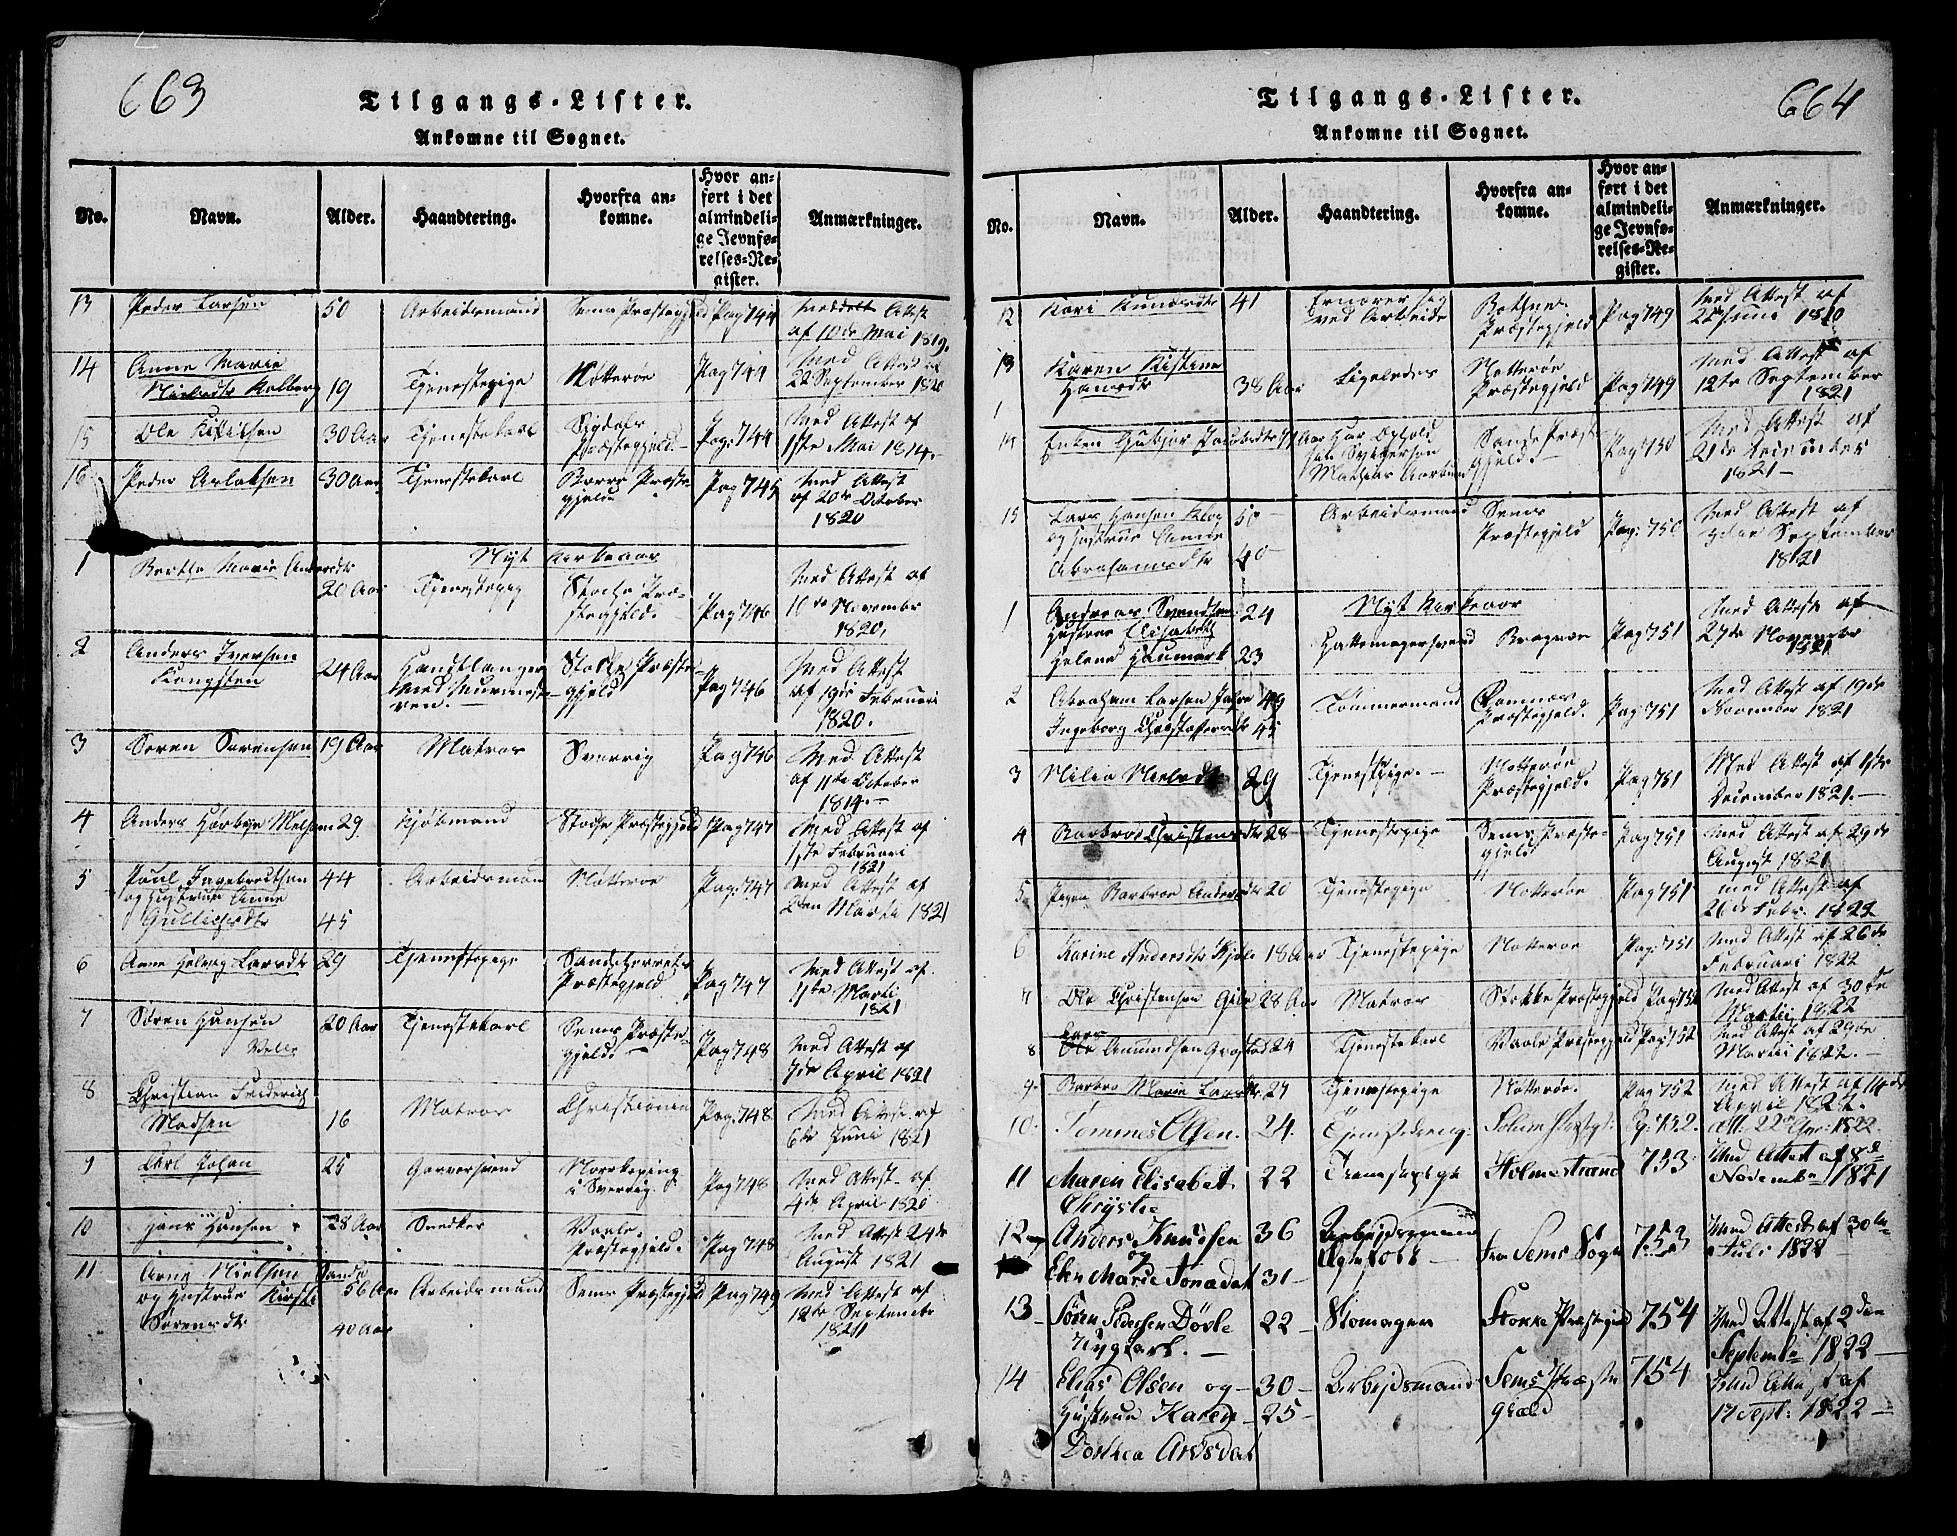 663
Tilgangs-Lister.
Ankomne til Sognet.
No.
Navn.
Alder.
Haandtering.
Hvorfra an-
komne.
Hvor an-
ført i det
almindeli-
ge Jevnfø-
relses-Re-
gister.
Anmærkninger.
13 Peder Larsen 50 Arbeidsmand Sems Præstegjeld Pag 744 Attest
af 10de Mai 1819.
14 Anne Marie
Nielsdtr Kolberg 19 Tjenestepige Nøtterøe Pag 744 Med Attest af
22 September 1820
15 Ole Kittilsen 30 Aar Tjenestekarl Sigdals
Præstegjeld Pag: 744 Med Attest af
1ste Mai 1814.
16 Peder Aslaksen 30 Aar Tjenestekarl Borre Præste-
gjeld Pag 745 Med Attest
af 20de October
1820
Nyt Kirkeaar
1 Berthe Marie Andersdtr
20 Aar Tjenestepige Stocke Præ-
stegjeld. Pag 746 Med Attest af
10de November
1820,
2 Anders Iversen
24 Aar Handtlanger
Stokke Præste-
gjeld Pag 746 Med Attest
af 19de Februari
1820.
3 Søren Sørensen 19 Aar Matros Sverrig Pag 746 Med Attest
af 11te October
1814.
4 Anders Horbye Melsom 29 Kjøbmand Stocke Præstegjeld Pag 747 Med Attest af
1ste Februari
1821
5 Poul Ingebretsen
og Hustrue Anne
Gullichsdtr 44
45 Arbeidsmand Nøtterøe Pag: 747 Med Attest af
2den Martii 1821
6 Anne Helvig Larsdtr 29 Tjenestepige Sandeherreds
Præstegjeld Pag 747 Med Attest af
1ste Marti
1821
7 Søren Hansen
20 Aar Tjenestekarl Sems Præste-
gjeld Pag 748 Med Attest af
7de April 1821
8 Christian Friderich
Madsen 16 Matros Christiania Pag. 748 Med Attest af
6te Juni 1821
9 Carl Johan 25 Garversvend Norrkøping
i Sverrig Pag 748 Med Attest af
4de April 1820
10 Hans Hansen 28 Aar Snedker Vaale
Præstegjeld. Pag 748 Med Attest 24de
August 1821
11 Arne Nielsen Sande
og Hustrue Kirsti
Sørensdtr 56 Aar
40 Aar Arbeidsmand Sems Præstegjeld Pag 749 Med Attest af
12te September
1821
664
Tilgangs-Lister.
Ankomne til Sognet.
No.
Navn.
Alder.
Haandtering.
Hvorfra an-
komne.
Hvor an-
ført i det
almindeli-
ge Jevnfø-
relses-Re-
gister.
Anmærkninger.
12 Kari 41 Ernærer sig
ved Arbeide Bothne
Præstegjeld Pag 749 Med Attest af
Juni 1810
13 Karen Kistine
Hansdtr 38 Aar Ligeledes Nøtterøe
Præstegjeld Pag 749 Med Attest af
12te September
1821
14 Enken Gubjør Ophold
Mathias Sande Præst
gjeld. Pag 750 Med Attest af
21de
1821
15 Lars Hansen
og Hustrue Anne
Abrahamsdtr 50
40 Arbeidsmand Sems
Præstegjeld Pag: 750 Med Attest af
September
1821
Nyt Kirkeaar
1 Andreas Svendsen
Hustrue Elisabeth
Helene Haumark 24
23 Hattemagersvend Bragnæs Pag 751 Med Attest af
27de November
1821
2 Abraham Larsen
Ingeborg Christoffersdtr 49
45 Tømmermand Ramnæs
Præstegjeld. Pag 751 Med Attest af 19de
November 1821
3 Nilia Nielsdtr 29 Tjenestepige. Nøtterøe
Præstegjeld. Pag 751 Med Attest af 1ste
December 1821.
4 Barbroe Christensdtr 28 Tjenestepige Sems Præste-
gjeld Pag 751 Med Attest af 29de
August 1821
5 Pigen Barbroe Andersdtr 20 Tjenestepige Nøtterøe Pag 751 Med Attest af
26de Febr. 1822
6 Karine Andersdtr 18 Aar Tjenestepige Nøtterøe Pag: 751 Med Attest af 26de
Februari 1822
7 Ole Christensen 28 Aar Matros Stokke Præstegjeld Pag 752 Med Attest af 30te
Martii 1822
8 Lars
Amundsen 24 Tjenestekarl Vaale Præstegjeld Pag: 752 Med Attest af 29de
Martii 1822.
9 Barbro Marie Larsdtr 24 Tjenestepige Nøtterøe. Pag 752 Med Attest af 14de
April 1822.
10. Tommes Olsen. 24. Tjenestedreng. P: 752. Att. 22de Apr: 1822.
11 Maren Elisabet
Chrystie 22 Tienestepige Holmestrand 753 Med Attest af 8de
Novembr 1821
12 Anders Knudsen
og
Elen Marie Jonædat 36
31 Arbejdsmand
Fra Sems Sogn 753 Med Attest af 30te
Juli 1822
13 Søren Pedersen Døvle
22 Skomager Stokke Præstegield 754 Med Attest af 2den
Septembr 1822
14 Elias Olsen og
Hustrue Karen
Dorthea Arvsdat 30
25 Arbejdsmand Sems Præste
gield 754 Med Attest af
17 Sept: 1822